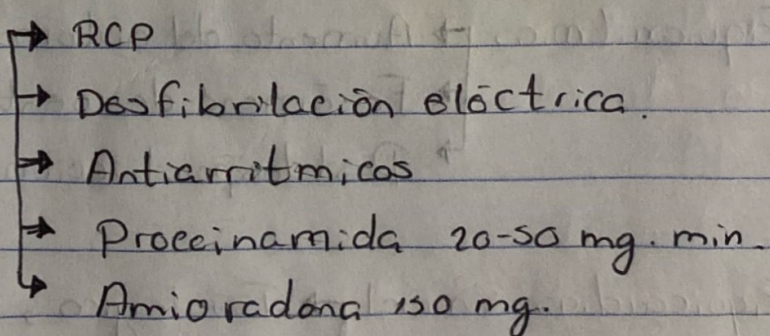 RCP
Desfibrilación eléctrica.
Antiarritmicos
Proccinamida 20-50 mg. min.
Amioradona 150 mg.